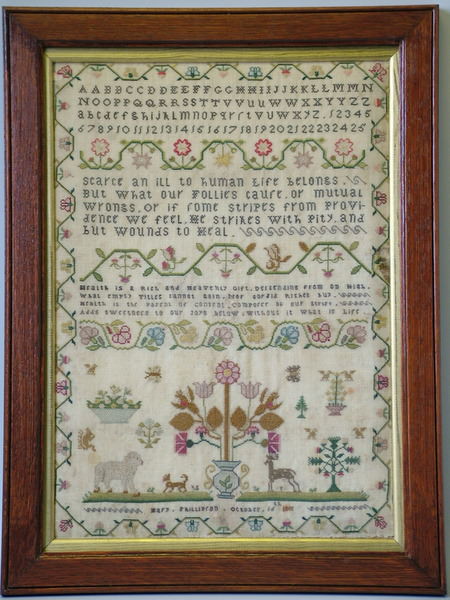 AABBCCDDEEFFGGHHIIJJKKLLMMN
NOOPPQQRRSSTTVVUUWWXXYYZZ
abcdefghijklmnopqrstvuwxyz.12345
678910111213141516171819202122232425
Scarce an ill to human Life belongs.
But what our Follies cause, or mutual
wrongs, or if some stripes from Provi-
dence we feel, He strikes with Pity, and
but wounds to Heal.
Health is a Rich and Heavenly Gift, Descending from on High,
What empty Titles cannot gain, Nor sordid Riches buy.
Health is the Parent of Content, Composer of our Strife,
Adds sweetness to our joys below, without it what is Life.
Mary. Phillipson. October. 16th